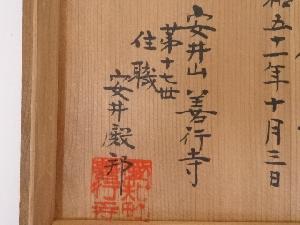 昭五十一年十月三日
安井山善行寺
第十七世
住職
安井殿邦